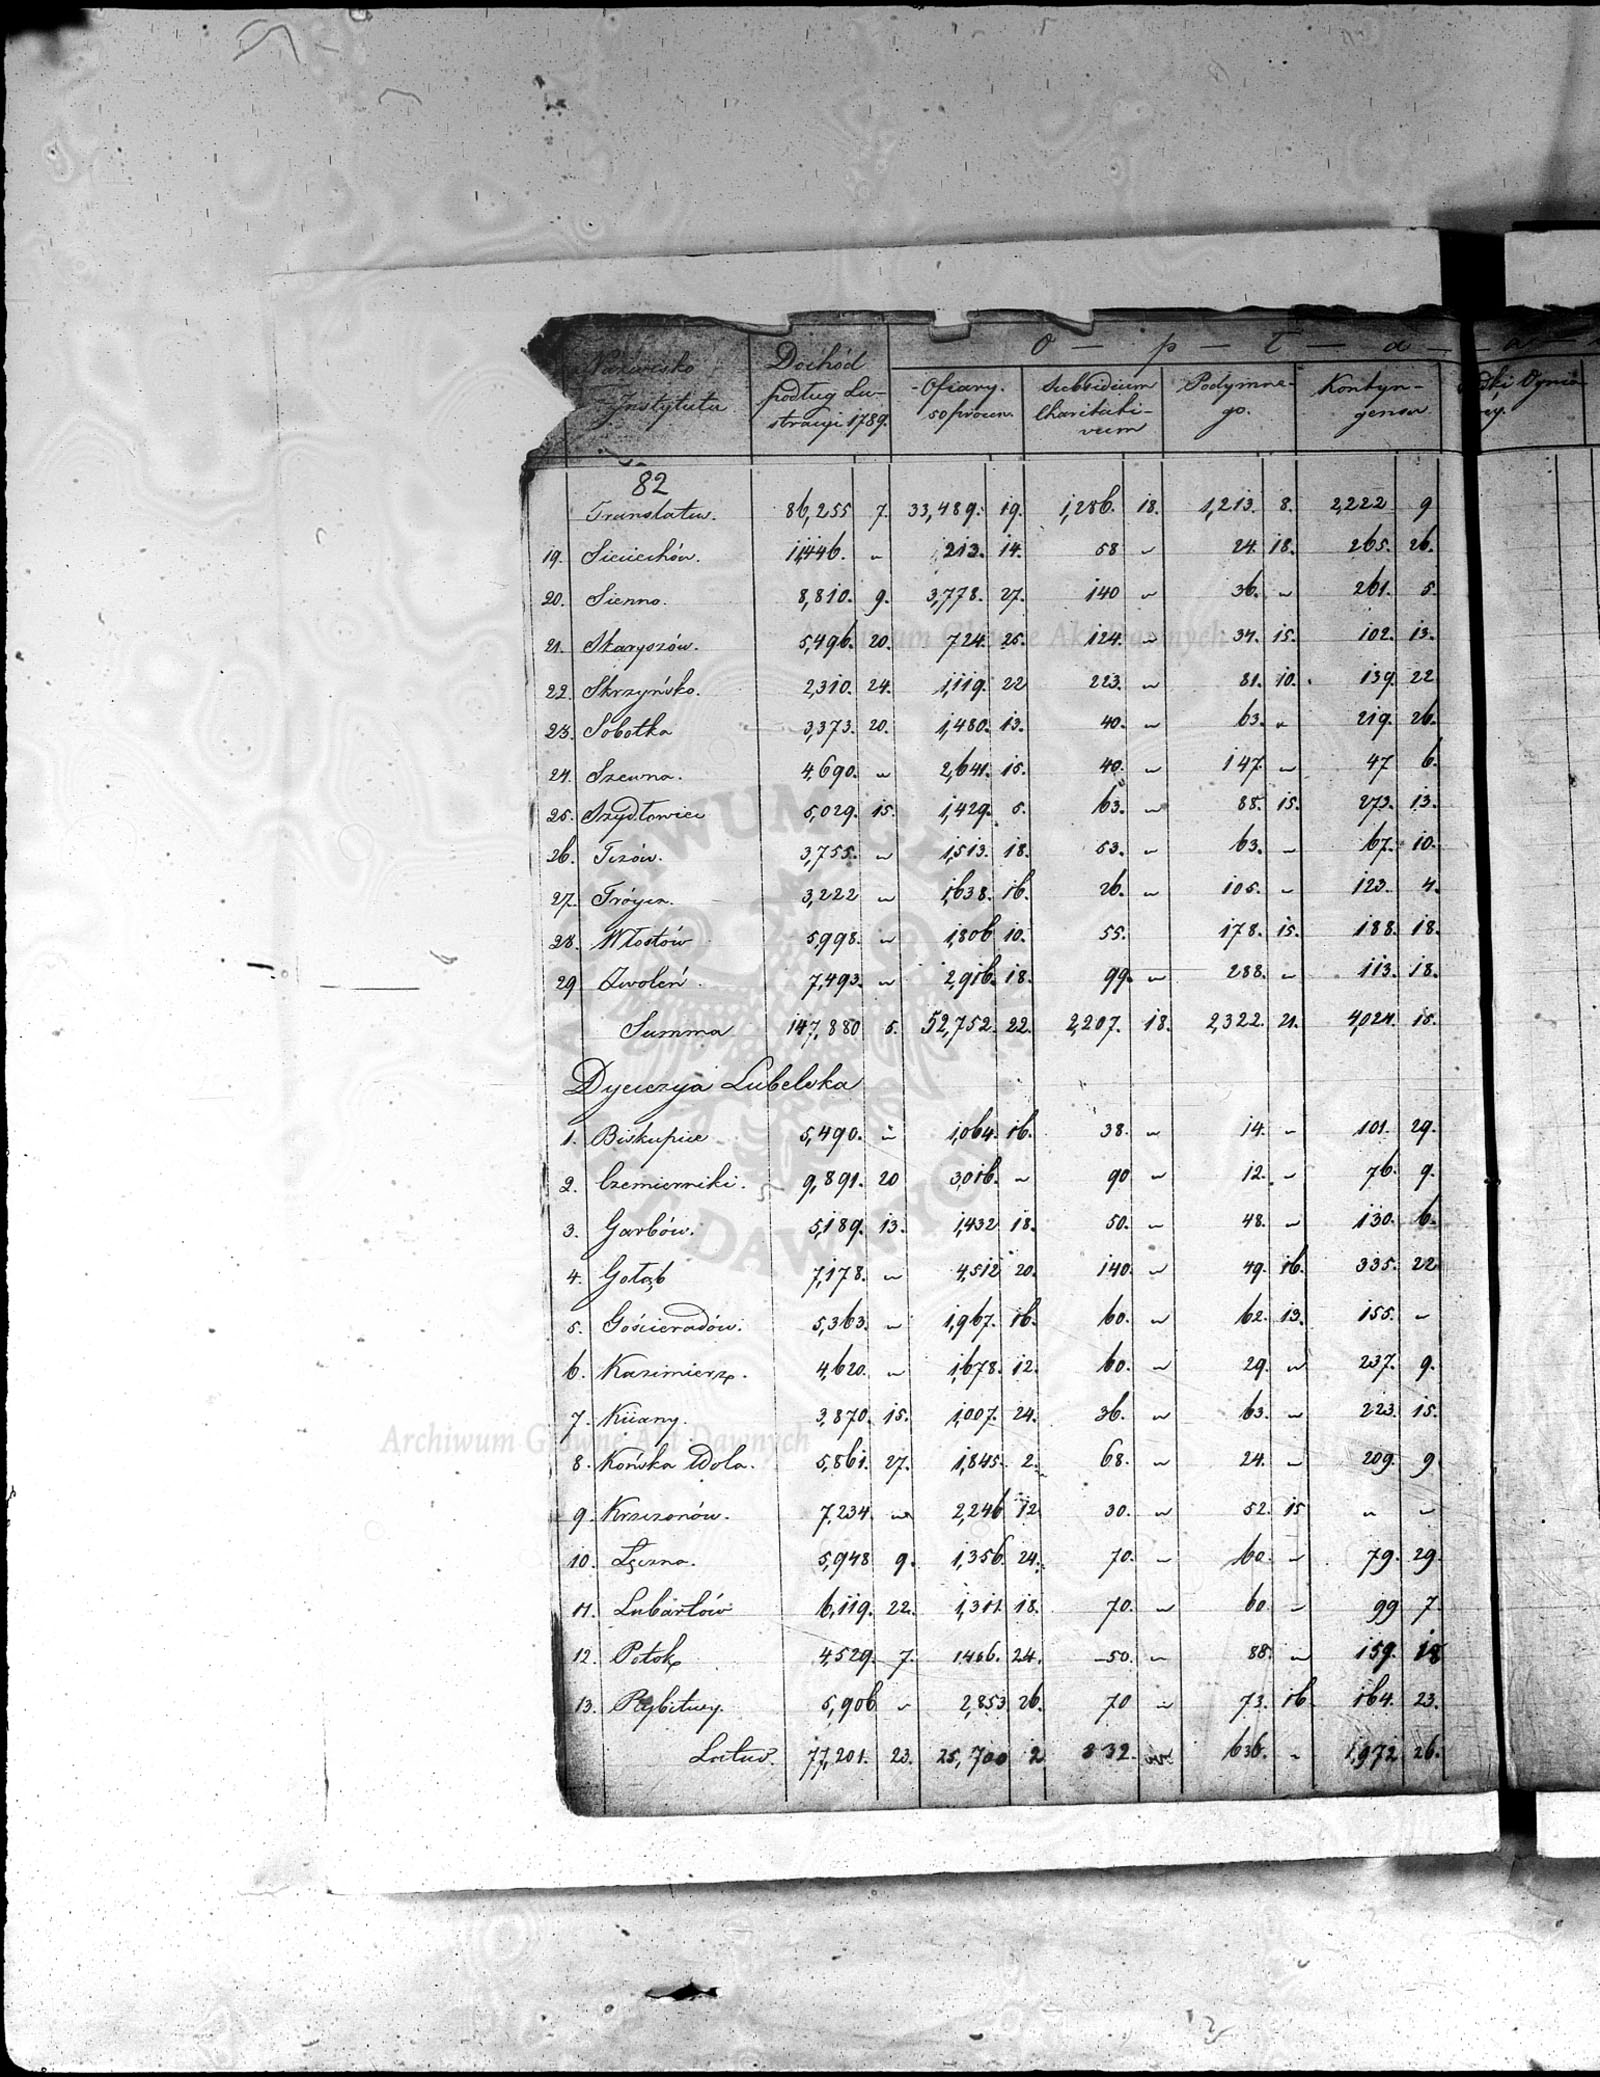 O — p — ł — a — a —
Nazwisko Instytutu | Dochód podług Lustracyi 1789. | Ofiary. 50 procen. | Subsidium Charitativum | Podymnego. | Kontyngensu
82
Translatum. 86,255 7. 33,489. 19. 1,286. 18. 1,213. 8. 2,222 9
19. Sieciechów. 1,446. „ 213. 14. 58 „ 24. 18. 265. 26.
20. Sienno. 8,810. 9. 3,778. 27. 140 „ 36. „ 261. 5.
21. Skaryszów. 5,496. 20. 724. 25. 124. „ 34. 15. 102. 13.
22. Skrzyńsko. 2,310. 24. 1,119. 22 223. „ 81. 10. 139. 22
23. Sobotka 3,373. 20. 1,480. 13. 40. „ 63. „ 219. 26.
24. Szewna. 4,690. „ 2,641. 15. 40. „ 147. „ 47 6.
25. Szydłowiec 5,029. 15. 1,429. 5. 63. „ 88. 15. 273. 13.
26. Tczów. 3,755. „ 1,513. 18. 53. „ 63. „ 67. 10.
27. Tróyca. 3,222 „ 1,638. 16. 26. „ 105. „ 123. 4.
28. Włostów 5,998. „ 1,806 10. 55. 178. 15. 188. 18.
29 Zwoleń. 7,493. „ 2,916. 18. 99. „ 288. „ 113. 18.
Summa 147,880 5. 52,752. 22. 2,207. 18. 2,322. 21. 4,024. 15.
Dyecezya Lubelska
1. Biskupice 5,490. „ 1,064. 16. 38. „ 14. „ 101. 29.
2. Czemierniki. 9,891. 20 3,016. „ 90 „ 12. „ 76. 9.
3. Garbów. 5,189. 13. 1,432 18. 50. „ 48. „ 130. 6.
4. Gołąb 7,178. „ 4,512 20. 140. „ 49. 16. 335. 22
5. Gościeradów. 5,363. „ 1,967. 16. 60. „ 62. 13. 155. „
6. Kazimierz. 4,620. „ 1,678. 12. 60. „ 29. „ 237. 9.
7. Kiiany. 3,870. 15. 1,007. 24. 36. „ 63. „ 223. 15.
8. Końska Wola. 5,861. 27. 1,845. 2. 68. „ 24. „ 209. 9
9. Krzczonów. 7,234. „ 2,246 12 30. „ 52. 15 „ „
10. Łęczna. 5,948 9. 1,356 24. 70. „ 60. „ 79. 29.
11. Lubartów 6,119. 22. 1,311. 18. 70. „ 60 „ 99 7.
12. Potok 4,529. 7. 1,466. 24. 50. „ 88. „ 159. 18
13. Rybitwy. 5,906 „ 2,853 26. 70 „ 73. 16. 164. 23.
Latus. 77,201. 23. 25,700 2 832. „ 636. „ 1,972 26.
Archiwum Główne Akt Dawnych
Archiwum Główne Akt Dawnych